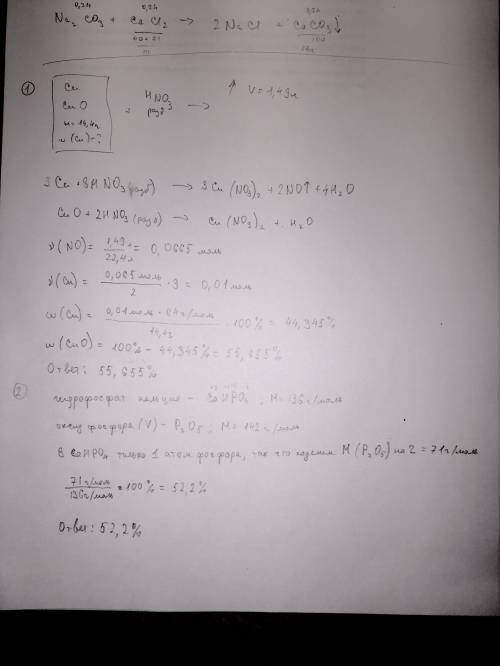 0,24 0,24 0,24
Na2CO3 + CaCl2 → 2NaCl + CaCO3↓
40+71 100
111
1
Cu
CuO
m=14,4г
w(Cu)-?
+ HNO3 разб → ↑ V=1,49л
3Cu+8HNO3(разб) → 3Cu(NO3)2+2NO↑+4H2O
CuO+2HNO3(разб) → Cu(NO3)2 + H2O
ν(NO)= 1,49л/22,4л = 0,0665 моль
ν(Cu)= 0,0665моль/2 · 3 = 0,01моль
w(Cu)= 0,01моль · 64г/моль/14,4г · 100% = 44,345%
w(CuO)= 100% - 44,345% = 55,655%
Ответ: 55,655%
2 гидрофосфат кальция - CaHPO4; M=136г/моль
оксид фосфора (V) - P2O5; M=142г/моль
В CaHPO4 только 1 атом фосфора, так что M(P2O5) на 2 = 71г/моль
71г/моль/136г/моль · 100% = 52,2%
Ответ: 52,2%